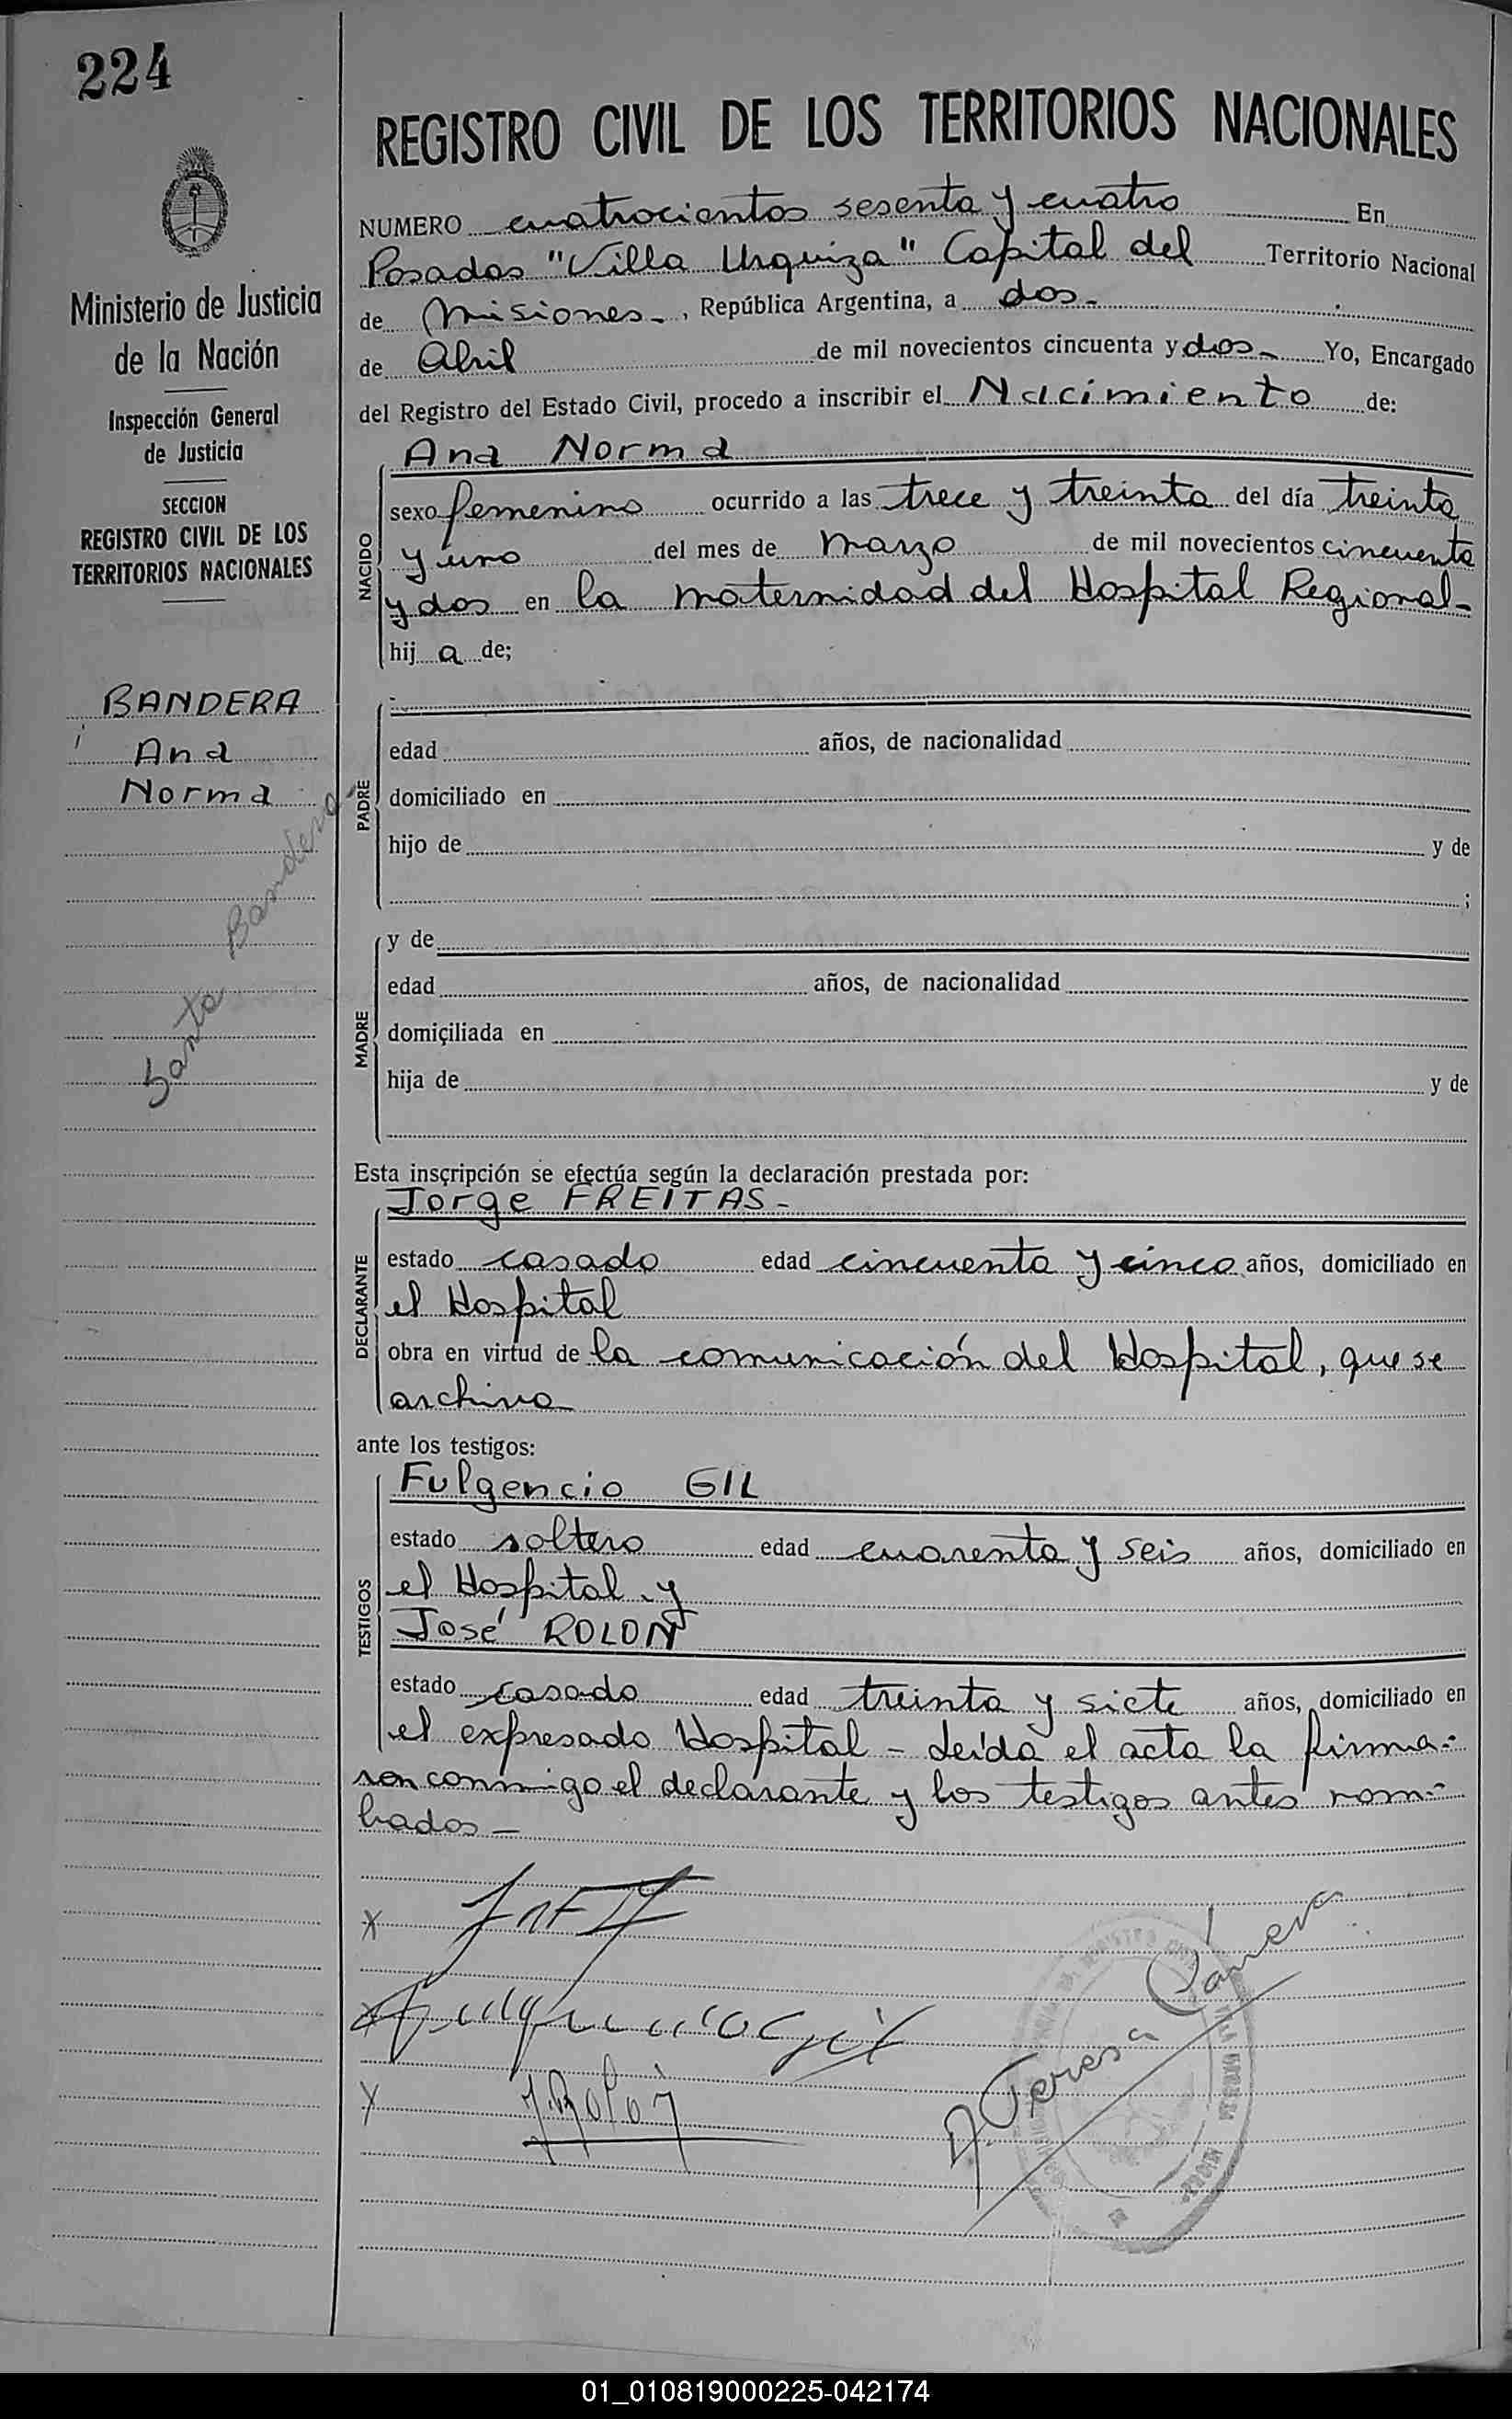 224
REGISTRO CIVIL DE LOS TERRITORIOS NACIONALES
Ministerio de Justicia
de la Nación
Inspección General
de Justicia
SECCION
REGISTRO CIVIL DE LOS
TERRITORIOS NACIONALES
BANDERA
Ana
Norma
Santa Bandera
NUMERO cuatrocientos sesenta y cuatro En
Posadas "Villa Urquiza" Capital del Territorio Nacional
de Misiones-, República Argentina, a dos-
de Abril de mil novecientos cincuenta y dos- Yo, Encargado
del Registro del Estado Civil, procedo a inscribir el Nacimiento de:
NACIDO
Ana Norma
sexo femenino ocurrido a las trece y treinta del día treinta
y uno del mes de marzo de mil novecientos cincuenta
y dos en la maternidad del Hospital Regional-
hij a de;
PADRE
edad años, de nacionalidad
domiciliado en
hijo de y de
;
MADRE
y de
edad años, de nacionalidad
domiciliada en
hija de y de
Esta inscripción se efectúa según la declaración prestada por:
DECLARANTE
Jorge FREITAS-
estado casado edad cincuenta y cinco años, domiciliado en
el Hospital
obra en virtud de la comunicación del Hospital, que se
archiva
ante los testigos:
TESTIGOS
Fulgencio GIL
estado soltero edad cuarenta y seis años, domiciliado en
el Hospital y
José ROLON
estado casado edad treinta y siete años, domiciliado en
el expresado Hospital - Leída el acta la firma=
ron conmigo el declarante y los testigos antes nom=
brados-
X
X
J. Rolón
Teresa
01_010819000225-042174